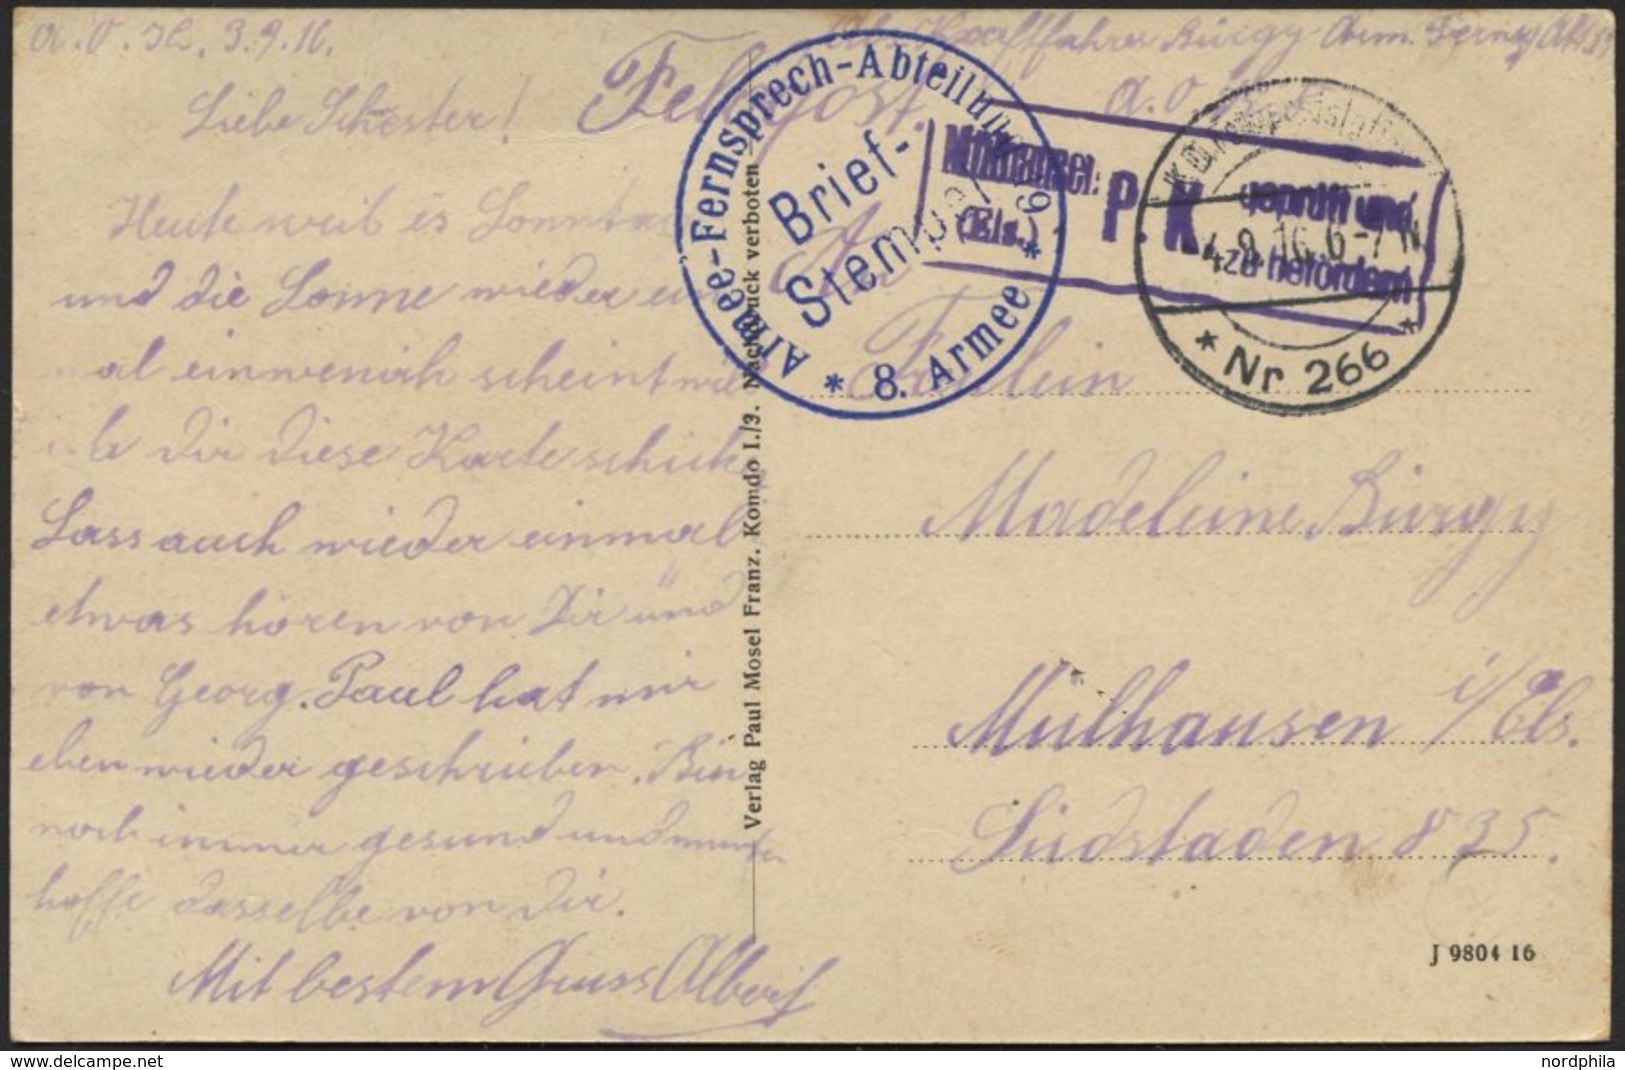 a. O. 3.9.16.
Kraftfahrer Bürgy Arm. Fernspr. Abt.
Feldpost.
a. O.
Liebe Schester!
Heute weil es Sonntag
und die Sonne wieder
mal einwenich scheint will
Dir diese Karte schick
Lass auch wieder einmal
etwas hören von Dir und
von Georg. Paul hat mir
eben wieder geschrieben. Bin
noch immer gesund und munter
hoffe dasselbe von Dir.
Mit bestem Gruss Albert
Verlag Paul Mosel Franz. Komdo I./3. Nachdruck verboten
Armee-Fernsprech-Abteilung
Brief-
Stempel
* 8. Armee *
Mülhausen
(Els.)
P. K.
geprüft und
zu befördern
4.9.16. 6-7 N
* Nr 266 *
An
Fräulein
Madeleine Bürgy
Mülhausen i/Els.
Südstaden 835.
J 9804 16
delcampe.net
nordphila